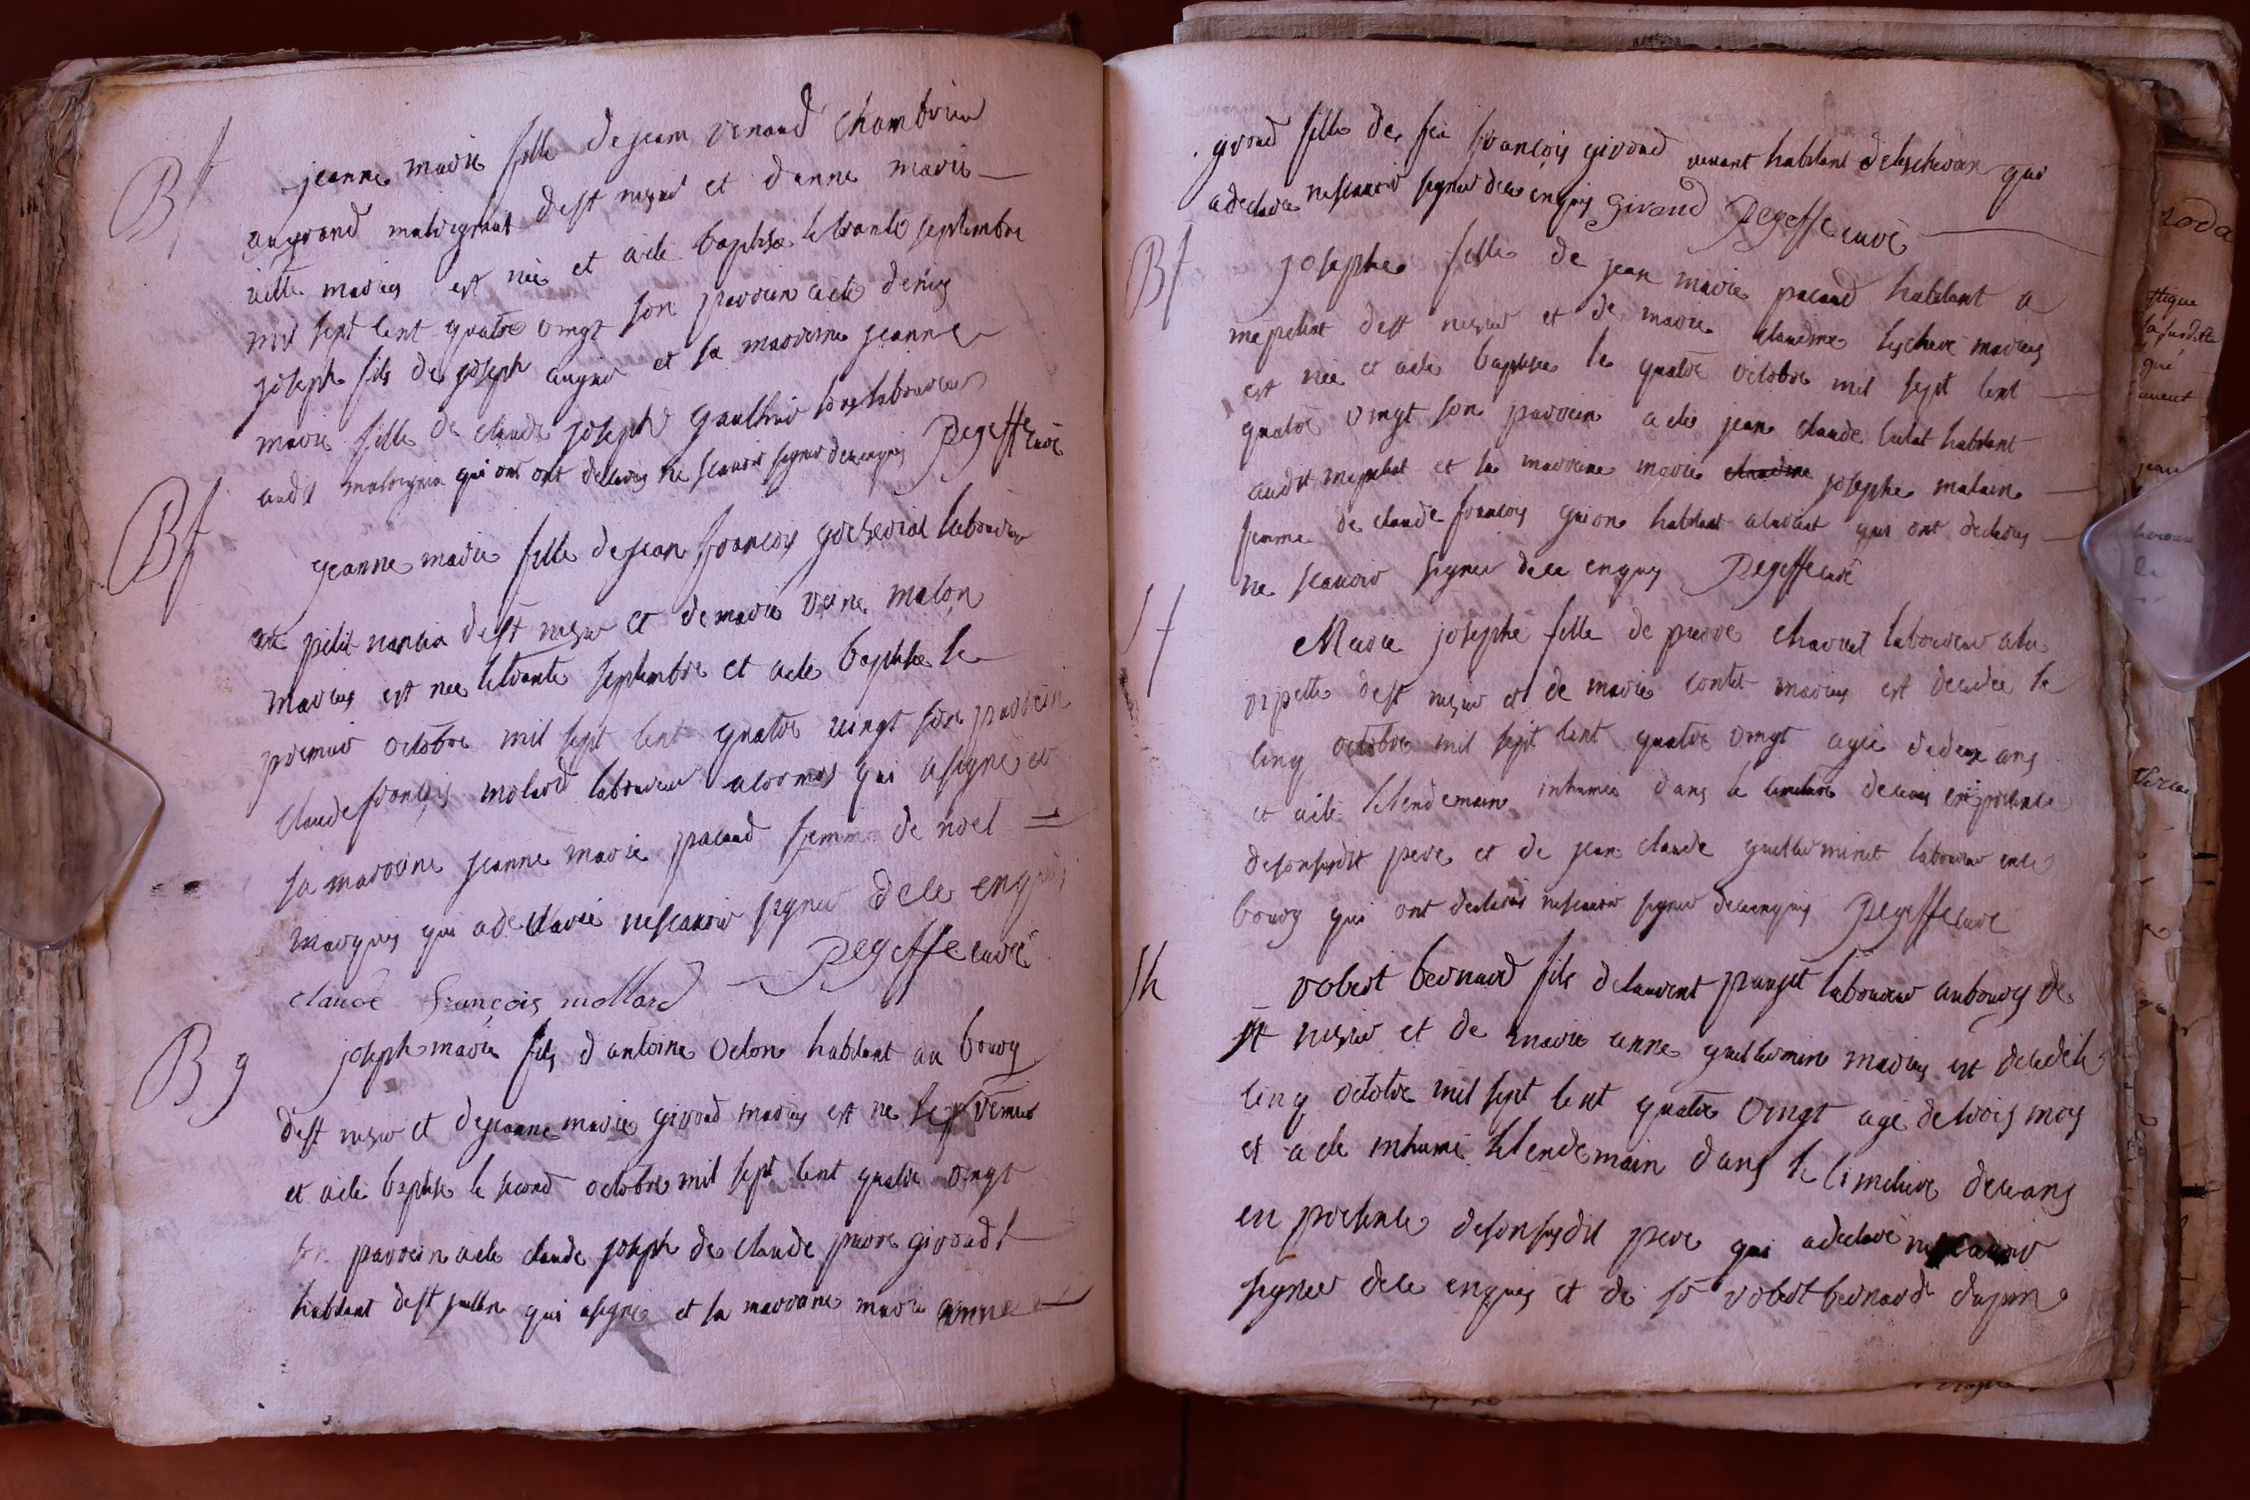 Bf
jeanne marie fille de jean renaud chambrier
augrand malvegnat dest nizier et danne marie
viette maries est nee et a ete baptisee le trante septembre
mil sept cent quatre vingt son parrein a ete denis
joseph fils de joseph augier et sa marreine jeanne
marie fille de claude joseph gaulthier tous laboureurs
audit qui ont declares ne scauoir signer de ce enquis Pegeffe curé
Bf
jeanne marie fille de jean françois laboureur
au petit nancin dest nizier et de marie reine maçon
maries est nee le trante septembre et a ete baptisee le
premier octobre mil sept cent quatre vingt son parrein
claude françois molard laboureur a cormos qui a signé et
sa marreine jeanne marie pacaud femme de noel
marquis qui a declaré ne scauoir signer de ce enquis
claude françois mollard Pegeffe curé
Bg
joseph marie fils dantoine octon habitant au bourg
dest nizier et de jeanne marie giroud maries est ne le premier
et a ete baptise le second octobre mil sept cent quatre vingt
son parrein a ete claude joseph de claude pierre giroudt
habitant dest jullin qui a signé et sa marreine marie anne
giroud fille de feu françois giroud viuant habitant de lescheroux qui
a declaré ne scauoir signer de ce enquis Giroud Pegeffe curé
Bf
josephe fille de jean marie pacaud habitant a
mepilliat dest nizier et de marie claudine lescheré maries
est nee et a ete baptisee le quatre octobre mil sept cent
quatre vingt son parrein a ete jean claude habitant
audit mepilliat et sa marreine marie claudine josephe
femme de claude françois guion habitant qui ont declares
ne scauoir signer de ce enquis Pegeffe curé
Sf
Marie josephe fille de pierre charuet laboureur a la
vipette dest nizier et de marie contet maries est decedee le
cinq octobre mil sept cent quatre vingt agee de deux ans
et a ete le lendemain inhumee dans le cimetiere de ceans en presence
de son susdit pere et de jean claude guilleminet laboureur en ce
bourg qui ont declares ne scauoir signer de ce enquis Pegeffe curé
Sh
robert bernard fils de laurent laboureur au bourg de
st nizier et de marie anne guillermin maries est decedé le
cinq octobre mil sept cent quatre vingt agé de trois mois
et a ete inhumé le lendemain dans le cimetiere de ceans
en presence de son susdit pere qui a declaré ne scauoir
signer de ce enquis et de sr robert bernard